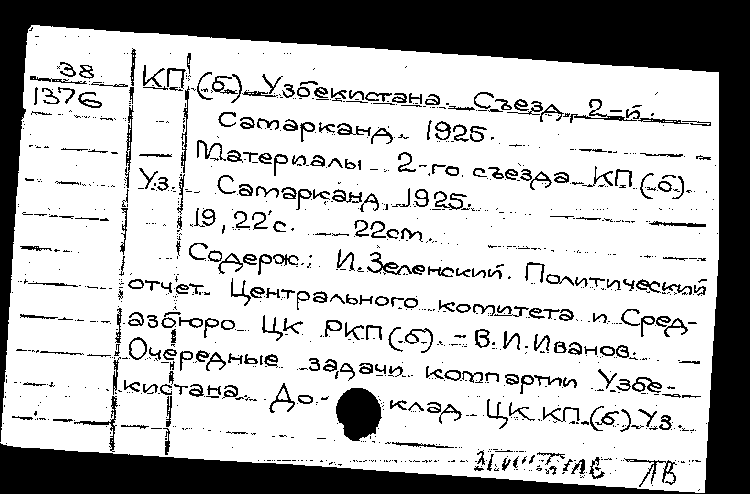 38 КП (б) Узбекистана. Съезд, 2-й.
1376 Самарканд. 1925.
Материалы 2-го съезда КП (б).
Уз. Самарканд, 1925.
19, 22 с. 22 cm.
Содерж.: И. Зеленский. Политический
отчет Центрального комитета и Сред-
азбюро ЦК РКП (б). - В. И. Иванов.
Очередные задачи компартии Узбе-
кистана. До- клад ЦК КП (б) Уз.
ЛВ